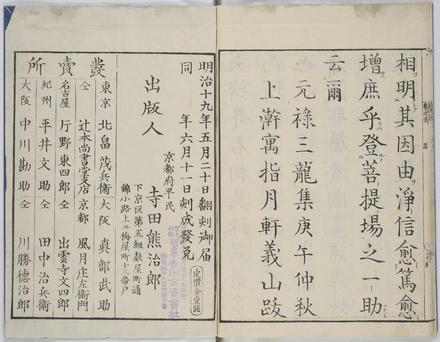 相明其因由淨信愈篤愈
增庶乎登菩提場之一助
云爾
元禄三龍集庚午仲秋
上澣寓指月軒義山跋
明治十九年五月二十日翻刻御届
同 年六月十一日刻成發兌
定價金壹圓
京都府平民
出版人 寺田熊治郎
下京區第五組麩屋町通
錦小路上ル梅屋町十三番戸
發賣所
東京 北畠茂兵衛
大阪 真部武助
仝 辻本尚書堂支店
京都 風月庄左衛門
名古屋 片野東四郎
仝 出雲寺文四郎
紀州 平井文助
仝 田中治兵衛
大阪 中川勘助
仝 川勝德治郎